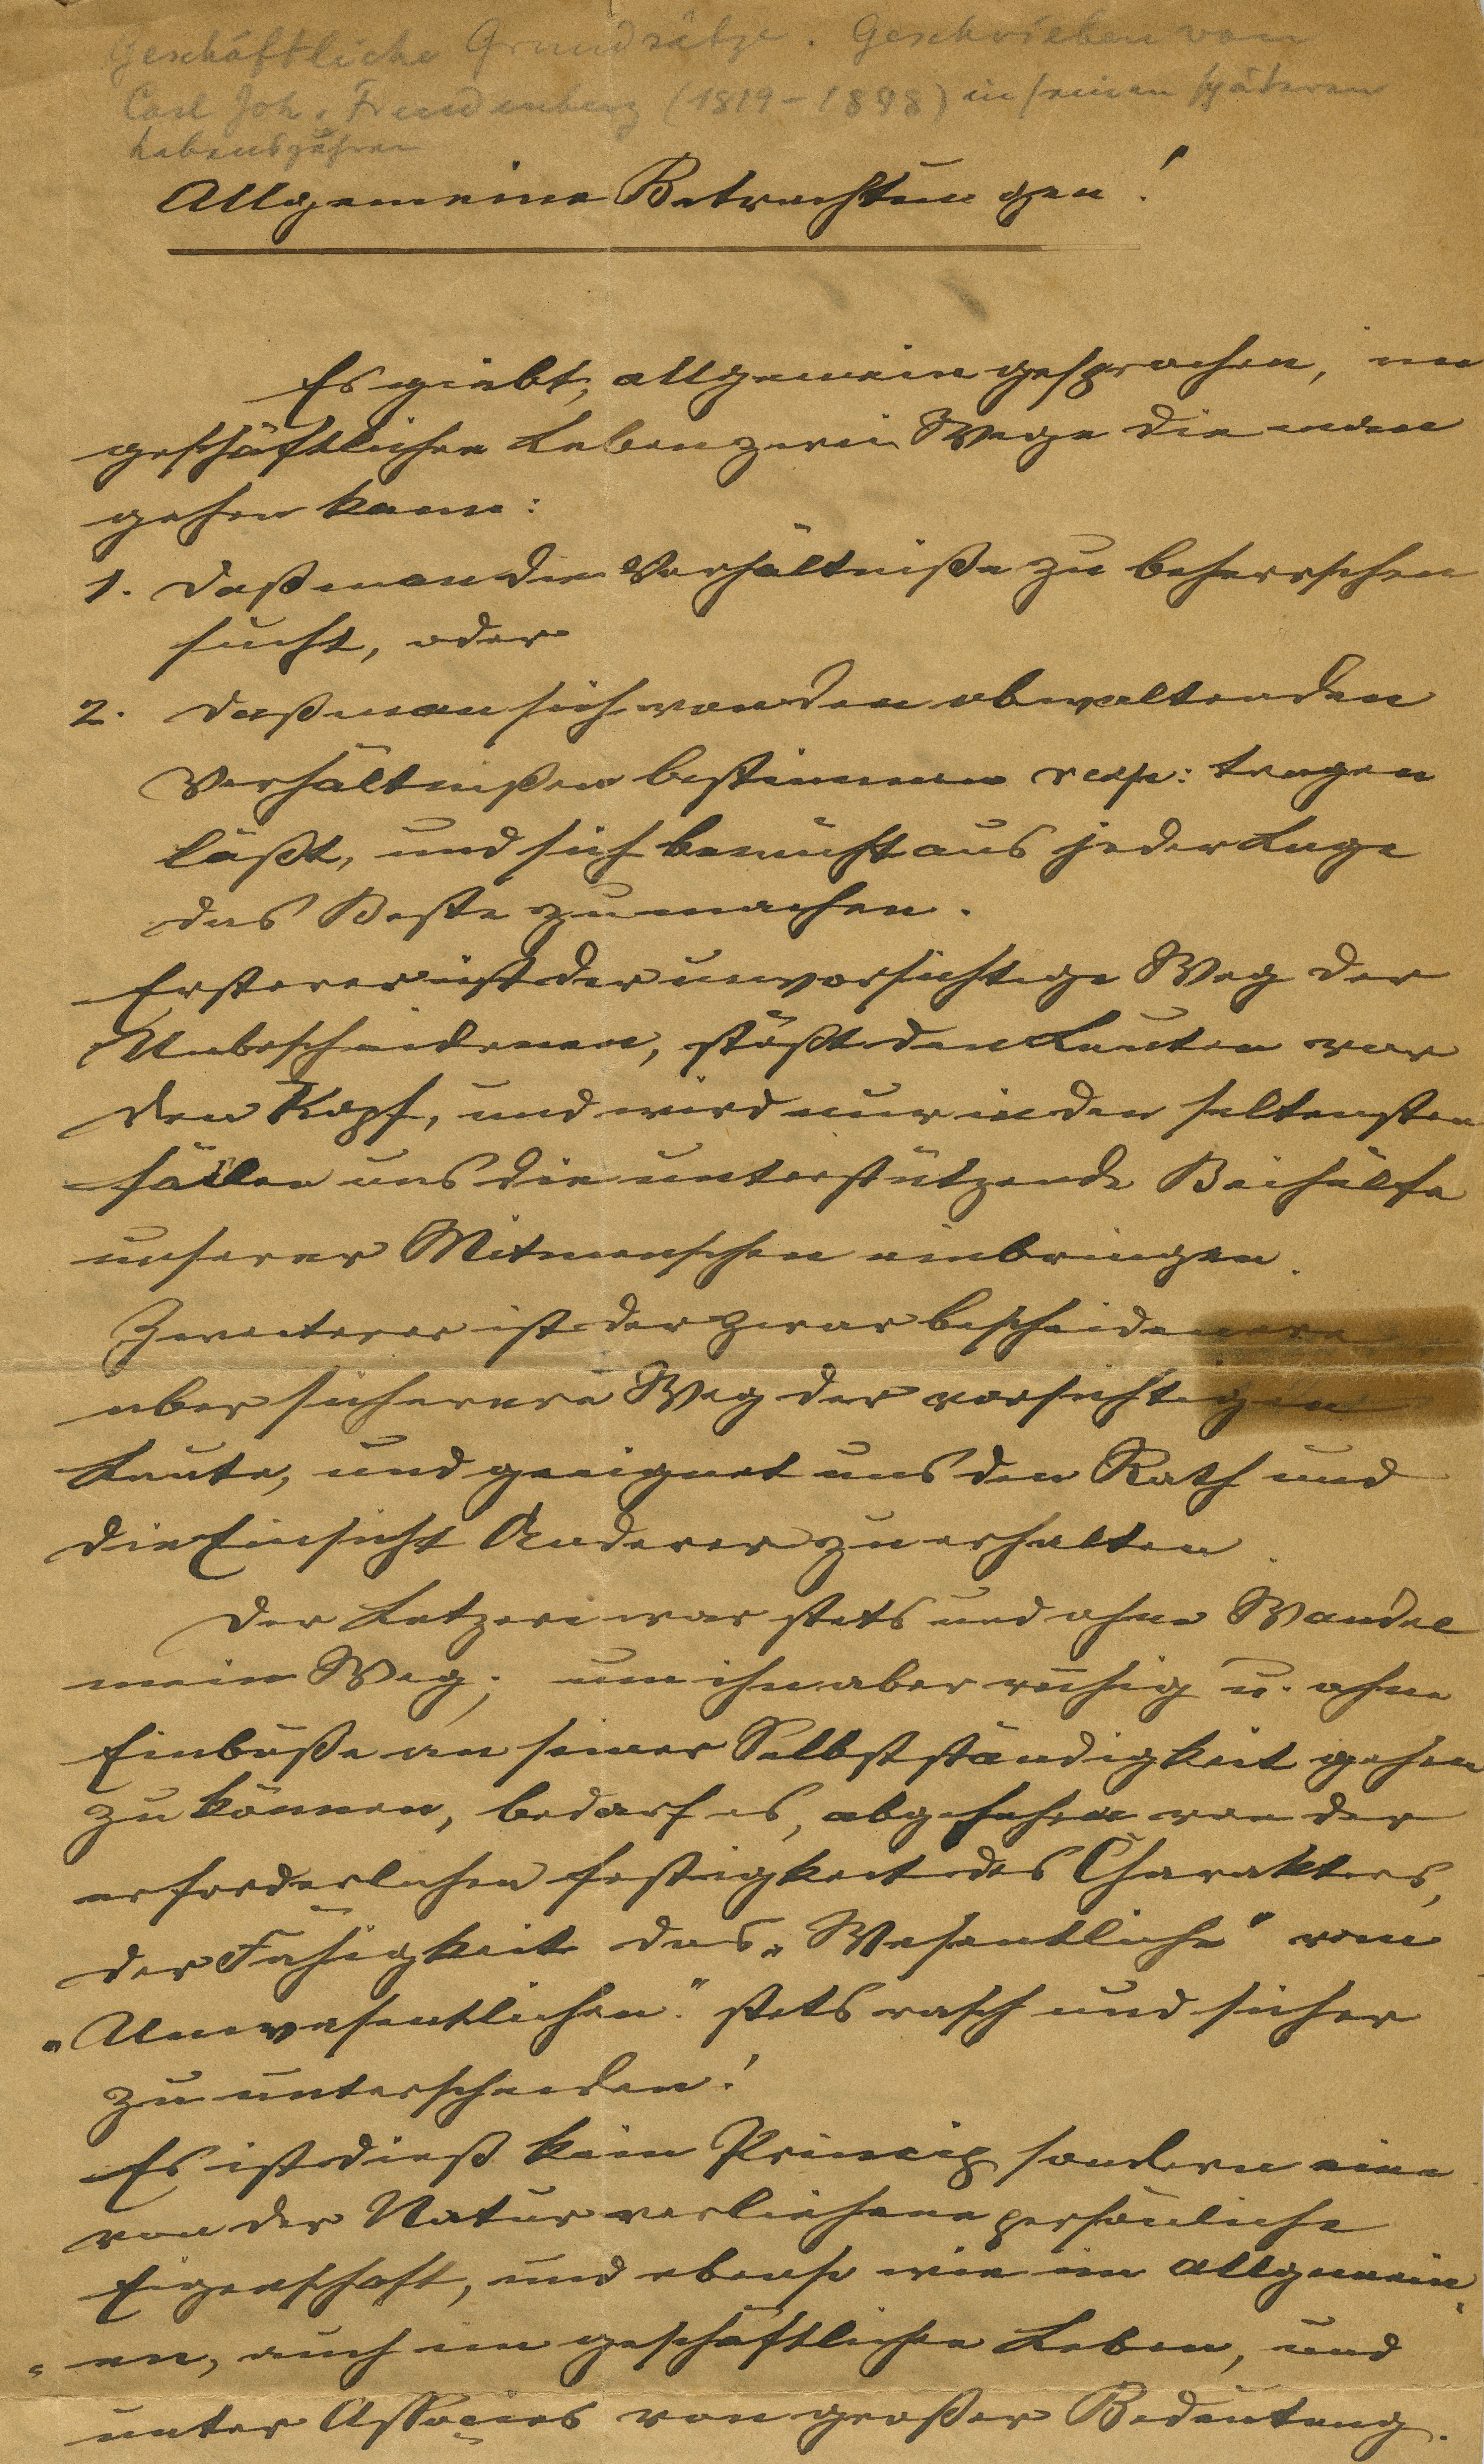 Geschäftliche Grundsätze. Geschrieben von
Carl Joh. Freudenberg (1819–1898) in seinen späteren
Lebensjahren
Allgemeine Betrachtungen!
Es giebt, allgemein gesprochen, im
geschäftlichen Leben zwei Wege die man
gehen kann:
1. Daß man die Verhältniße zu beherrschen
sucht, oder
2. Daß man sich von den obwaltenden
Verhältnißen bestimmen resp: tragen
läßt, und sich bemüht aus jeder Lage
das Beste zu machen.
Ersterer ist der unvorsichtige Weg der
Unbescheidenen, stößt den Leuten vor
den Kopf, und wird nur in den seltensten
Fällen uns die unterstützende Beihülfe
unserer Mitmenschen einbringen.
Zweiterer ist der zwar bescheidenere
aber sicherere Weg der vorsichtigen
Leute, und geeignet uns den Rath und
die Einsicht Anderer zu erhalten.
Der Letzere war stets und ohne Wandel
mein Weg; um ihn aber ruhig u. ohne
Einbuße an seiner Selbstständigkeit gehen
zu können, bedarf es, abgesehen von der
erforderlichen Festigkeit des Charakters,
der Fähigkeit das „Wesentliche" vom
„Unwesentlichen" stets rasch und sicher
zu unterscheiden!
Es ist dieß kein Princip sondern eine
von der Natur verliehene persönliche
Eigenschaft, und ebenso wie im allgemein
en, auch im geschäftlichen Leben, und
unter Associes von großer Bedeutung.